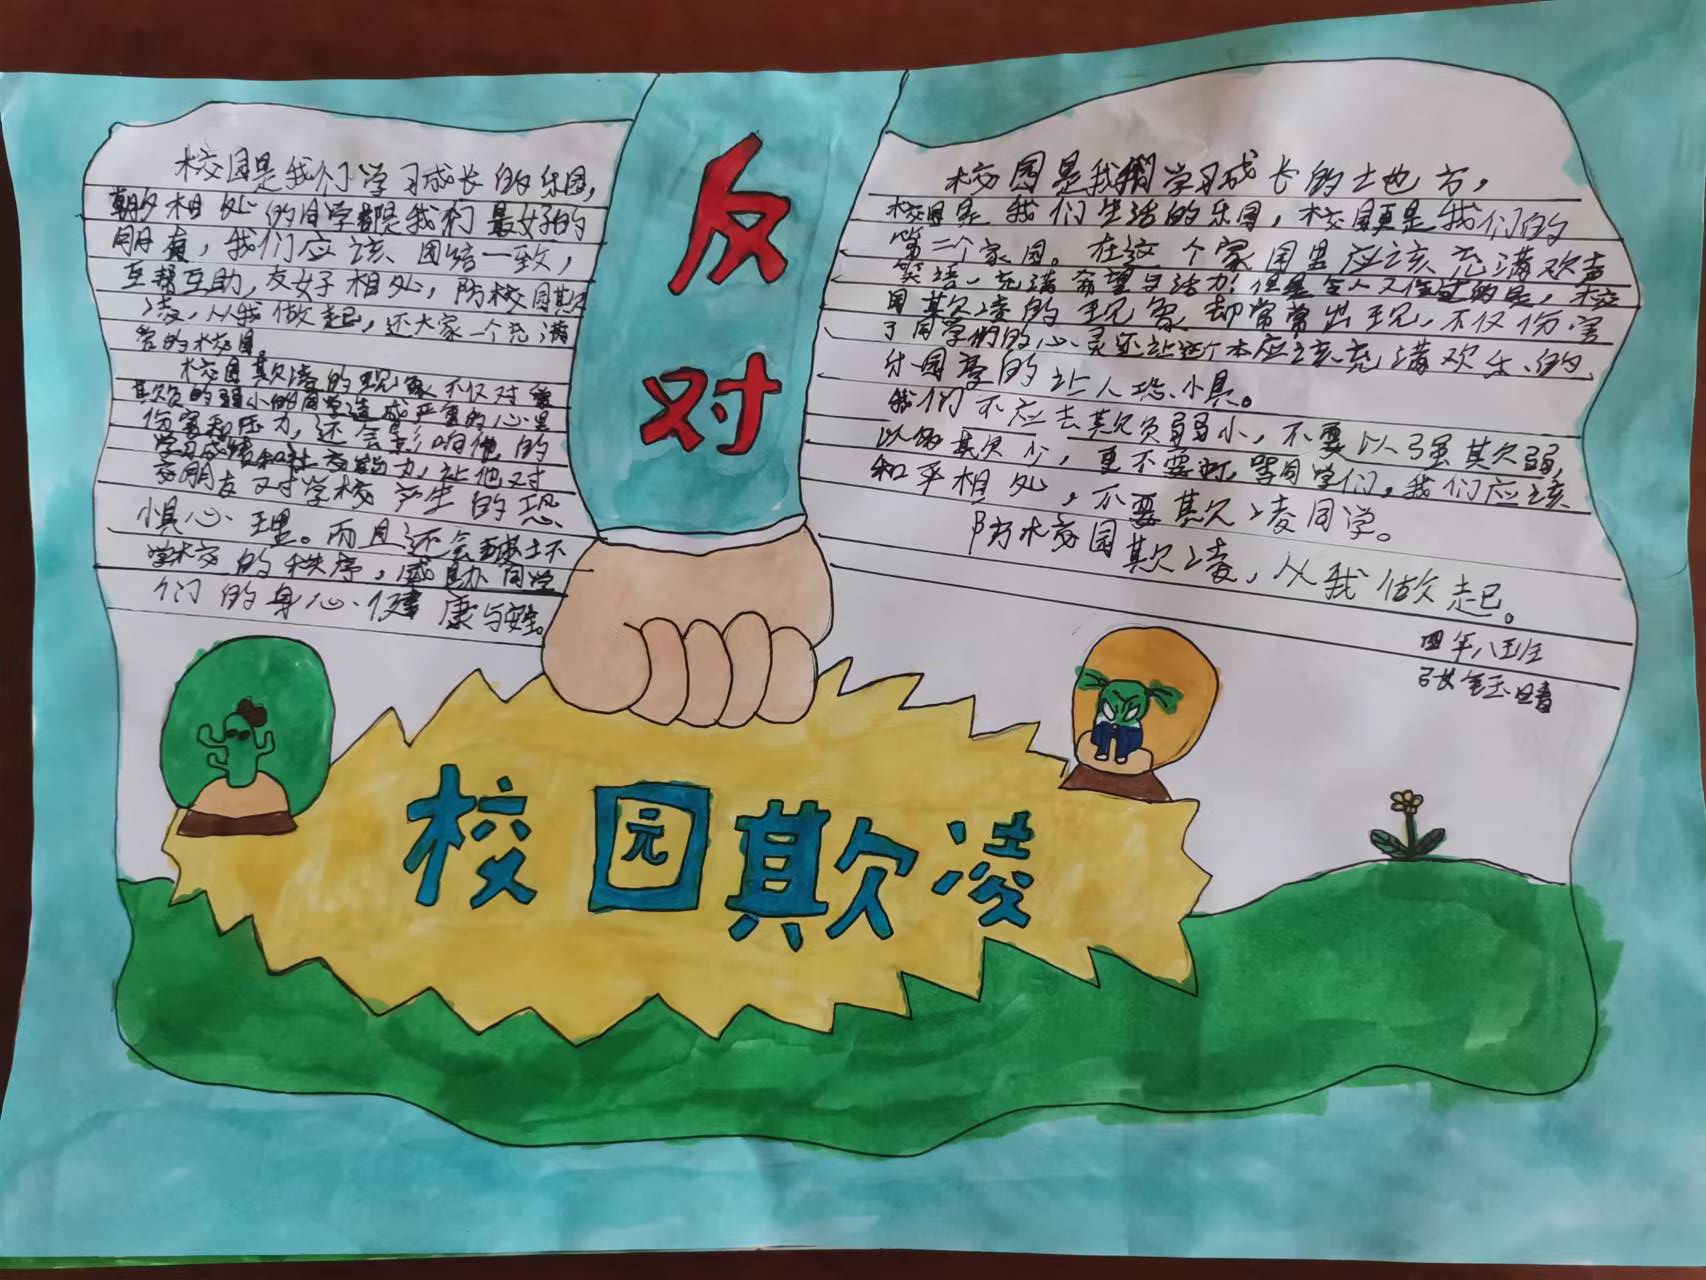 反
对
校园欺凌
校园是我们学习成长的乐园，
朝夕相处的同学都是我们最好的
朋友，我们应该团结一致，
互帮互助，友好相处，防校园欺
凌，从我做起，还大家一个充满
的校园
校园欺凌的现象不仅对受
欺负的弱小的同学造成严重的心里
伤害和压力，还会影响他的
学习成绩和社交能力，让他对
交朋友对学校产生的恐
惧心理。而且还会破坏
学校的秩序，威胁同学
们的身心健康与安全。
校园是我们学习成长的土地方，
校园是我们生活的乐园，校园更是我们的
第二个家园。在这个家园里应该充满欢声
笑语，充满希望与活力！但是令人的是，校
园欺凌的现象却常常出现，不仅伤害
了同学們的心灵还让这个本应该充满欢乐的
乐园变的让人恐惧。
我们不应去欺负弱小，不要以强欺弱，
以欺少，更不要同学们，我们应该
和平相处，不要欺凌同学。
防校园欺凌，从我做起。
四年八班
张钰晴